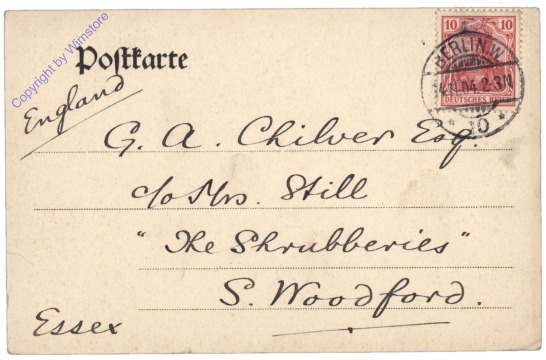 Copyright by Wimstore
Postkarte
10 10
BERLIN.W
.11.04.2-3N
DEUTSCHES REICH
England
G. A. Chilver Esq.
c/o Mrs. Still
"The Shrubberies"
S. Woodford.
Essex